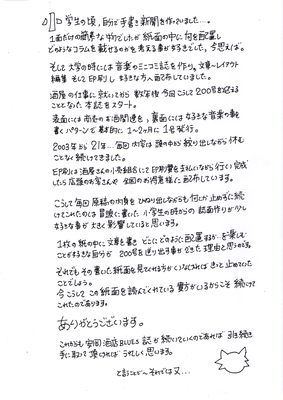 小学生の頃、自分で手書き新聞を作っていました…。
1面だけの簡素な物でしたが紙面の中に何を配置し
どのようなコラムを載せるのかを考える事が好きでした、今思えば。
そして大学の時には音楽のミニコミ誌を作り、文章〜レイアウト
編集そして印刷し好きな方へ配布していました。
酒屋の仕事に変えてから数年後今回こうして200号を迎える
こととなった本誌をスタート。
表面には当店のお酒関連を、裏面には好きな音楽の事を
書くパターンで基本的に1〜2ヶ月に1号発行。
2003年から21年…毎回内容は頭の中から絞り出しながら休む
ことなく続けてきました。
印刷には酒屋さんの小売組合にて印刷費を支払いながら行い完成
したら店頭のお客さんや全国のお得意様に配布しています。
こうして毎回原稿の内容をひねり出しながらも何とか止めずに続
けてこれたのには冒頭に書いた小学生の時からの誌面作りが少し
好きな事が大きく影響していると思います。
1枚の紙の中に文章を書きどこにどのように配置するか…を楽しむ
ことが好きな自分が200号を送り出す事ができた理由と思うのです。
それでもその書いた紙面を見てくれる方がいなければきっと止めていた
ことでしょう。
今こうしてこの紙面を読んでくれている貴方がいるからこそ続けて
これたのであります。
ありがとうございます。
これからも安岡酒店BLUES誌が続いていくのであれば引き続き
手に取って頂ければうれしく思います。
と言うことで〜それでは又…